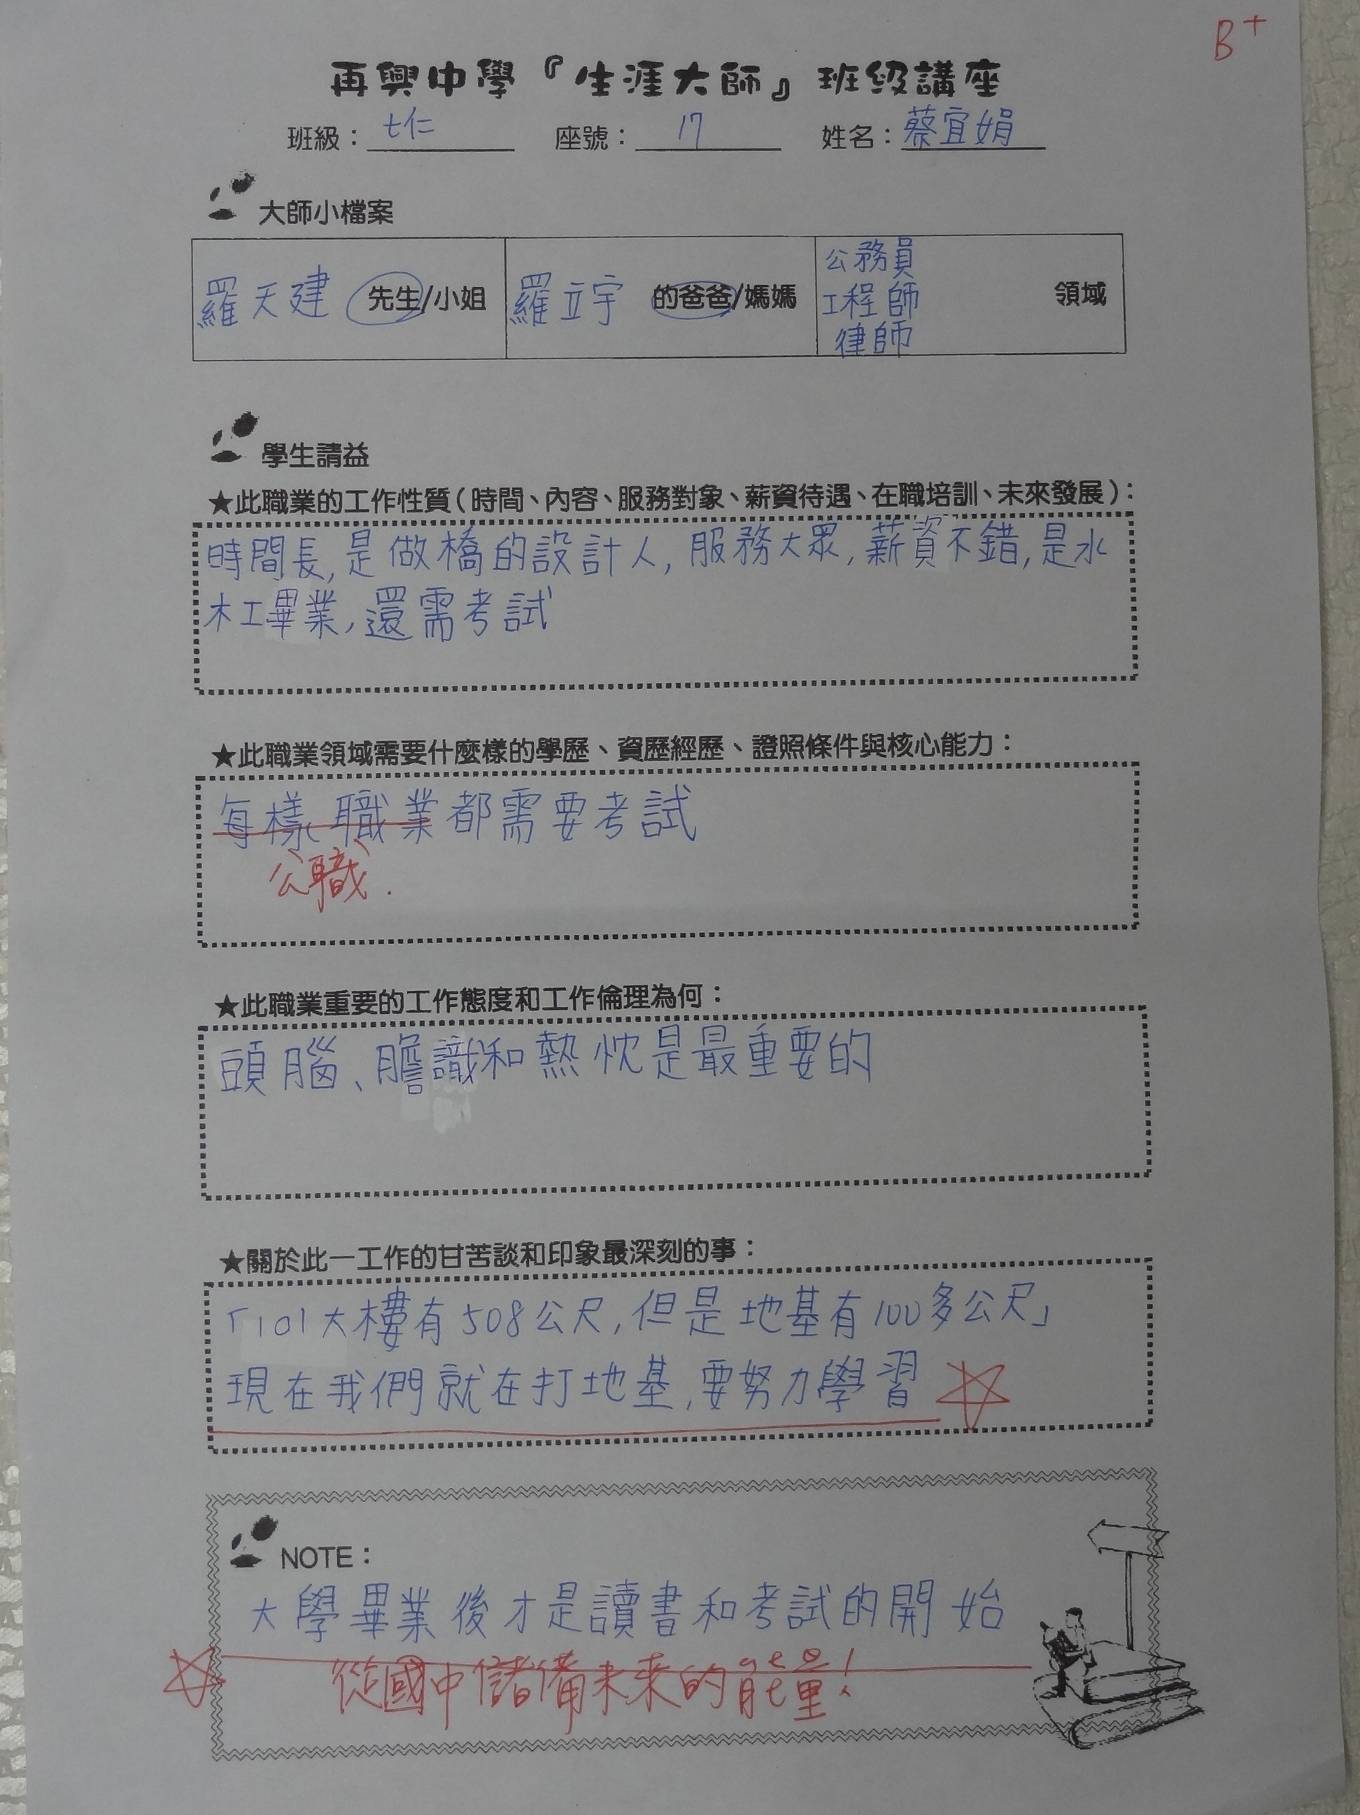 B+
再興中學『生涯大師』班級講座
班級：七仁 座號：17 姓名：蔡宜娟
大師小檔案
羅天建 先生/小姐 羅立宇 的爸爸/媽媽 公務員 工程師 律師 領域
學生請益
★此職業的工作性質（時間、內容、服務對象、薪資待遇、在職培訓、未來發展）：
時間長,是做橋的設計人,服務大眾,薪資不錯,是水
木工畢業,還需考試
★此職業領域需要什麼樣的學歷、資歷經歷、證照條件與核心能力：
每樣職業都需要考試
公職.
★此職業重要的工作態度和工作倫理為何：
頭腦、膽識和熱忱是最重要的
★關於此一工作的甘苦談和印象最深刻的事：
「101大樓有508公尺,但是地基有100多公尺」
現在我們就在打地基,要努力學習
NOTE：
大學畢業後才是讀書和考試的開始
從國中儲備未來的能量!